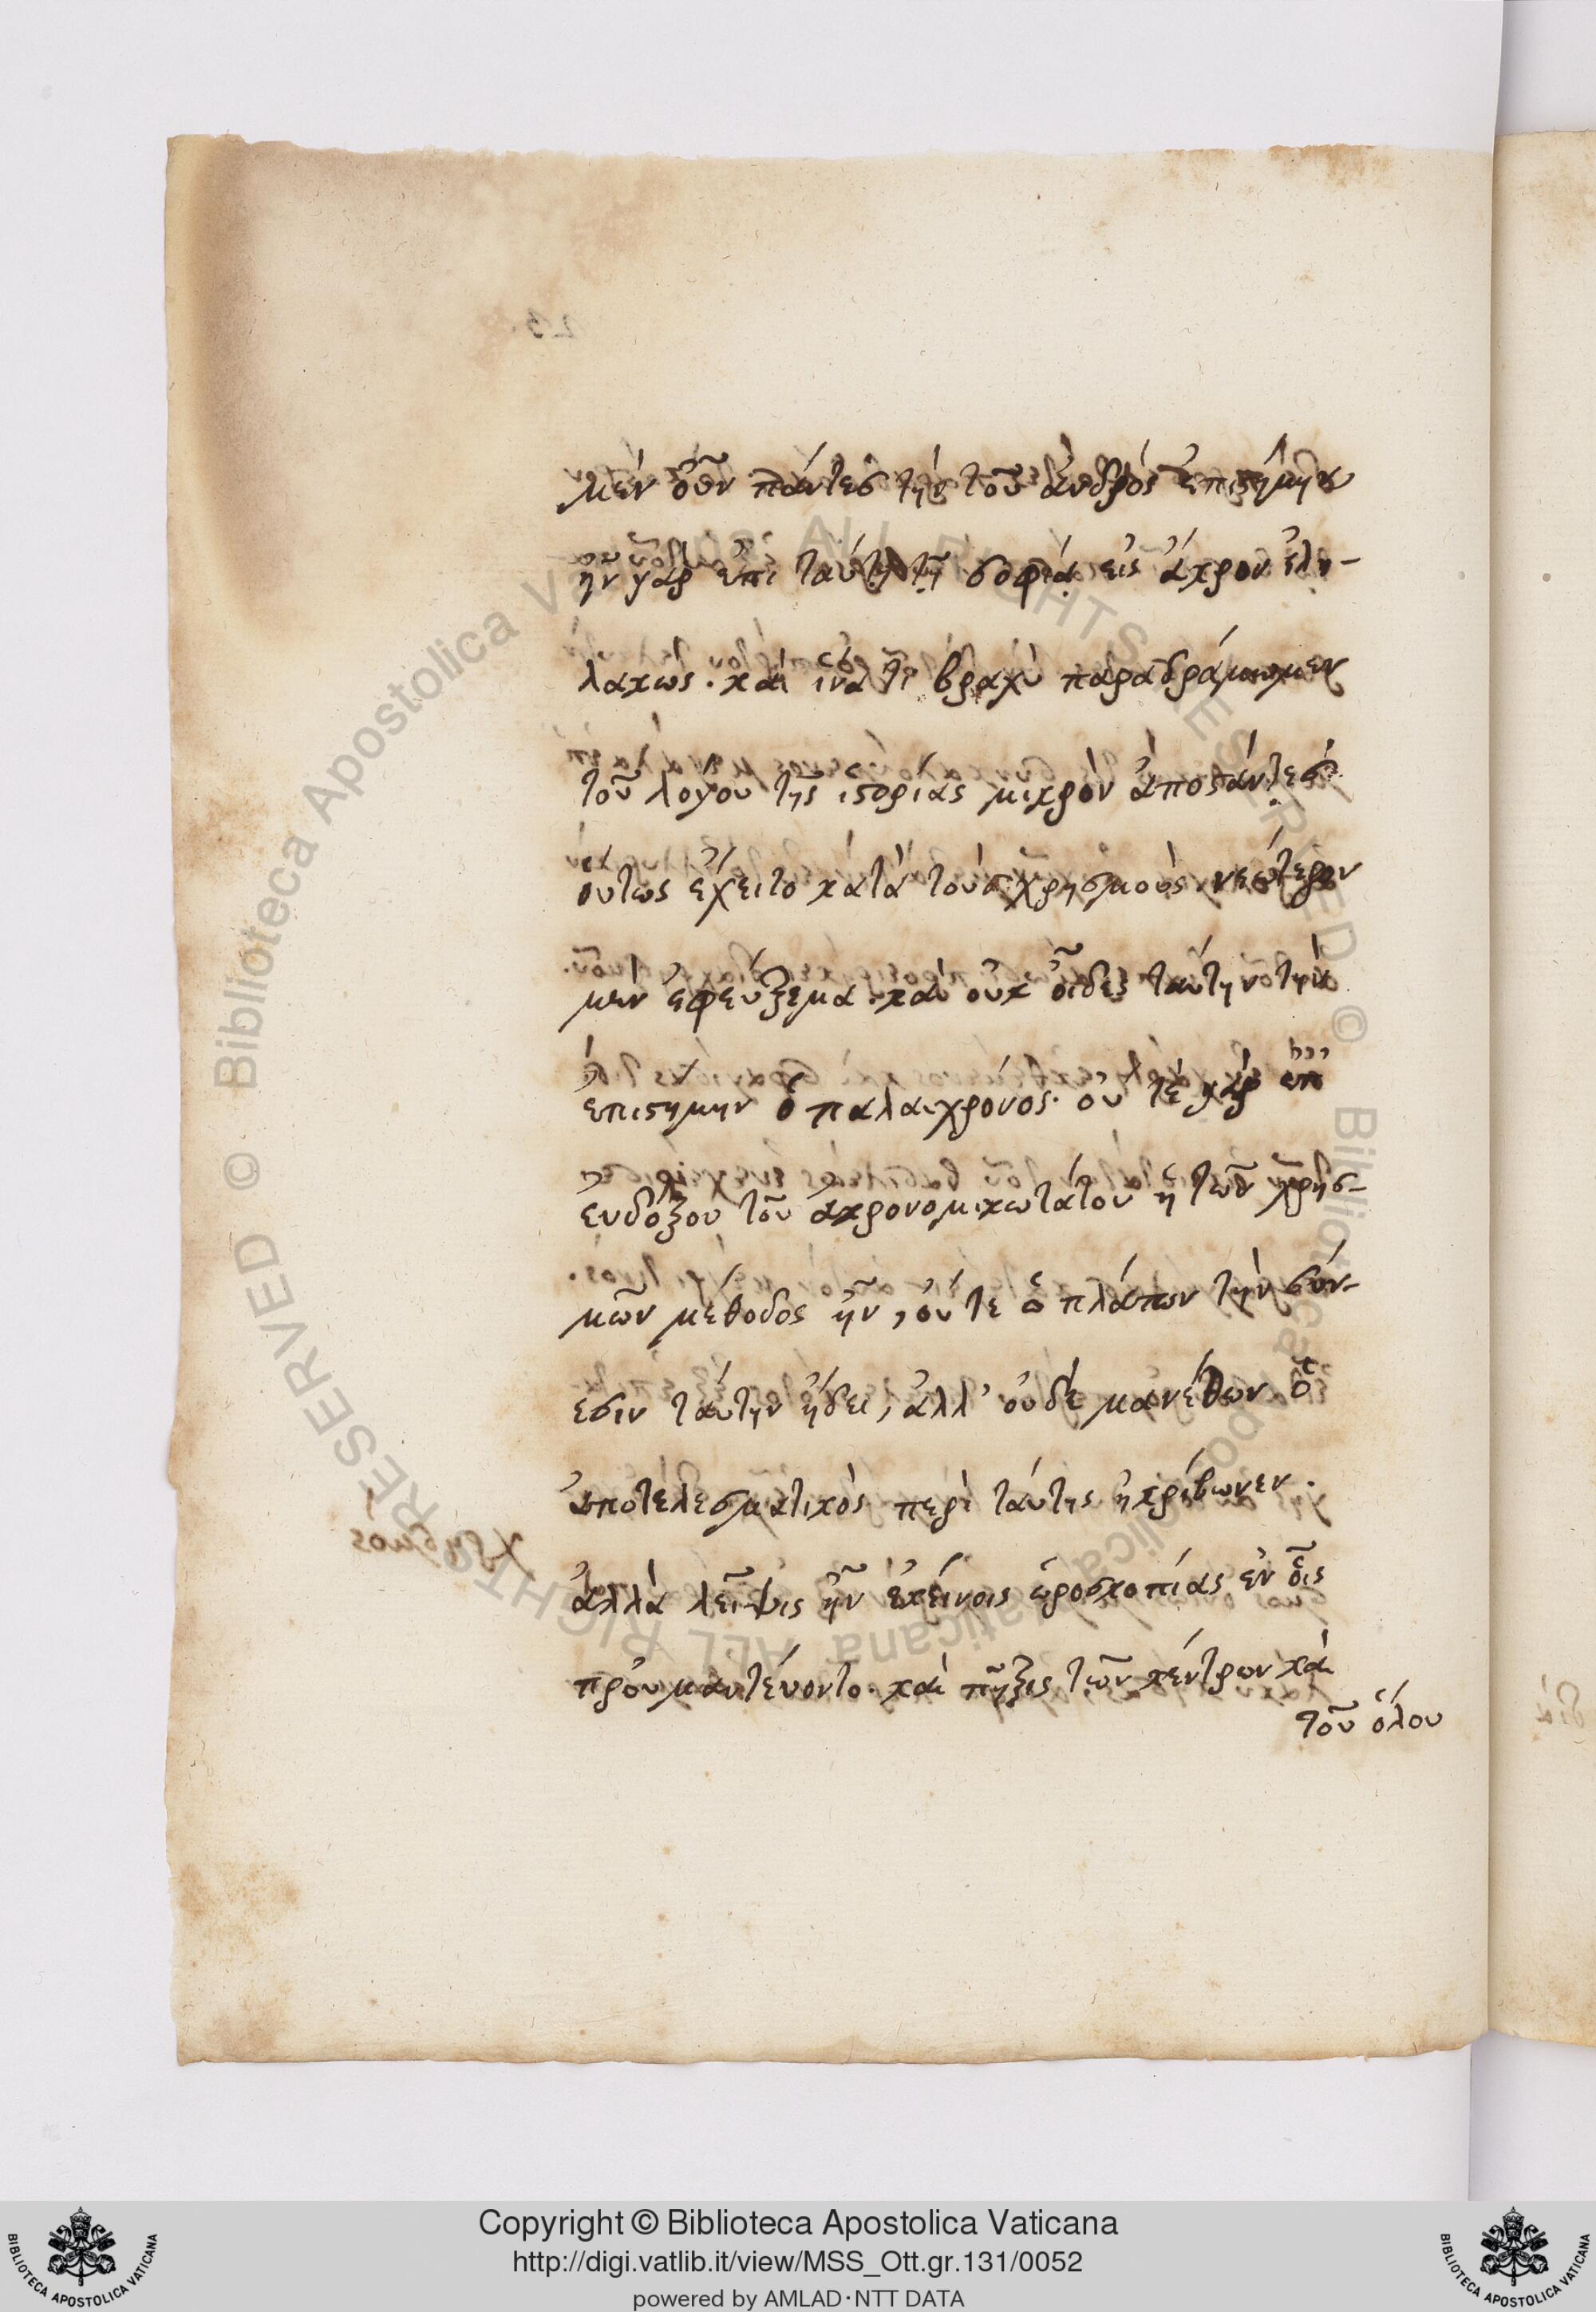 μὲν οὖν πάντες τὴν τοῦ ἀνδρὸς ἐπιστήμην
ἦν γὰρ ἐπὶ ταύτῃ τῇ σοφίᾳ εἰς ἄκρον ἐλη-
λακώς. καὶ ἵνα τι βραχὺ παραδράμωμεν
τοῦ λόγου τῆς ἱστορίας μικρὸν ἀποστάντες
οὕτως ἔχει τὸ κατὰ τοὺς χρησμοὺς νεώτερον
μὲν ἐφεύρεμα. καὶ οὐκ οἶδε ταύτην τὴν
ἐπιστήμην ὁ πάλαι χρόνος. οὔτε γὰρ ἐπ
ευδόξου τοῦ ἀστρονομικωτάτου ἡ τῶν χρησ-
μῶν μέθοδος ἦν, οὔτε ὁ πλάτων τὴν σύν-
εσιν ταύτην ᾔδει, ἀλλ' οὐδὲ μανέθων ὁ
ἀποτελεσματικὸς περὶ ταύτης ἠκρίβωνεν.
ἀλλὰ λεῖψις ἦν ἐκείνοις ὡροσκοπίας ἐν οἷς
προυμαντεύοντο. καὶ πῆξις τῶν κέντρων καὶ
τοῦ ὅλου
Copyright © Biblioteca Apostolica Vaticana
http://digi.vatlib.it/view/MSS_Ott.gr.131/0052
powered by AMLAD·NTT DATA
BIBLIOTECA APOSTOLICA VATICANA
BIBLIOTECA APOSTOLICA VATICANA